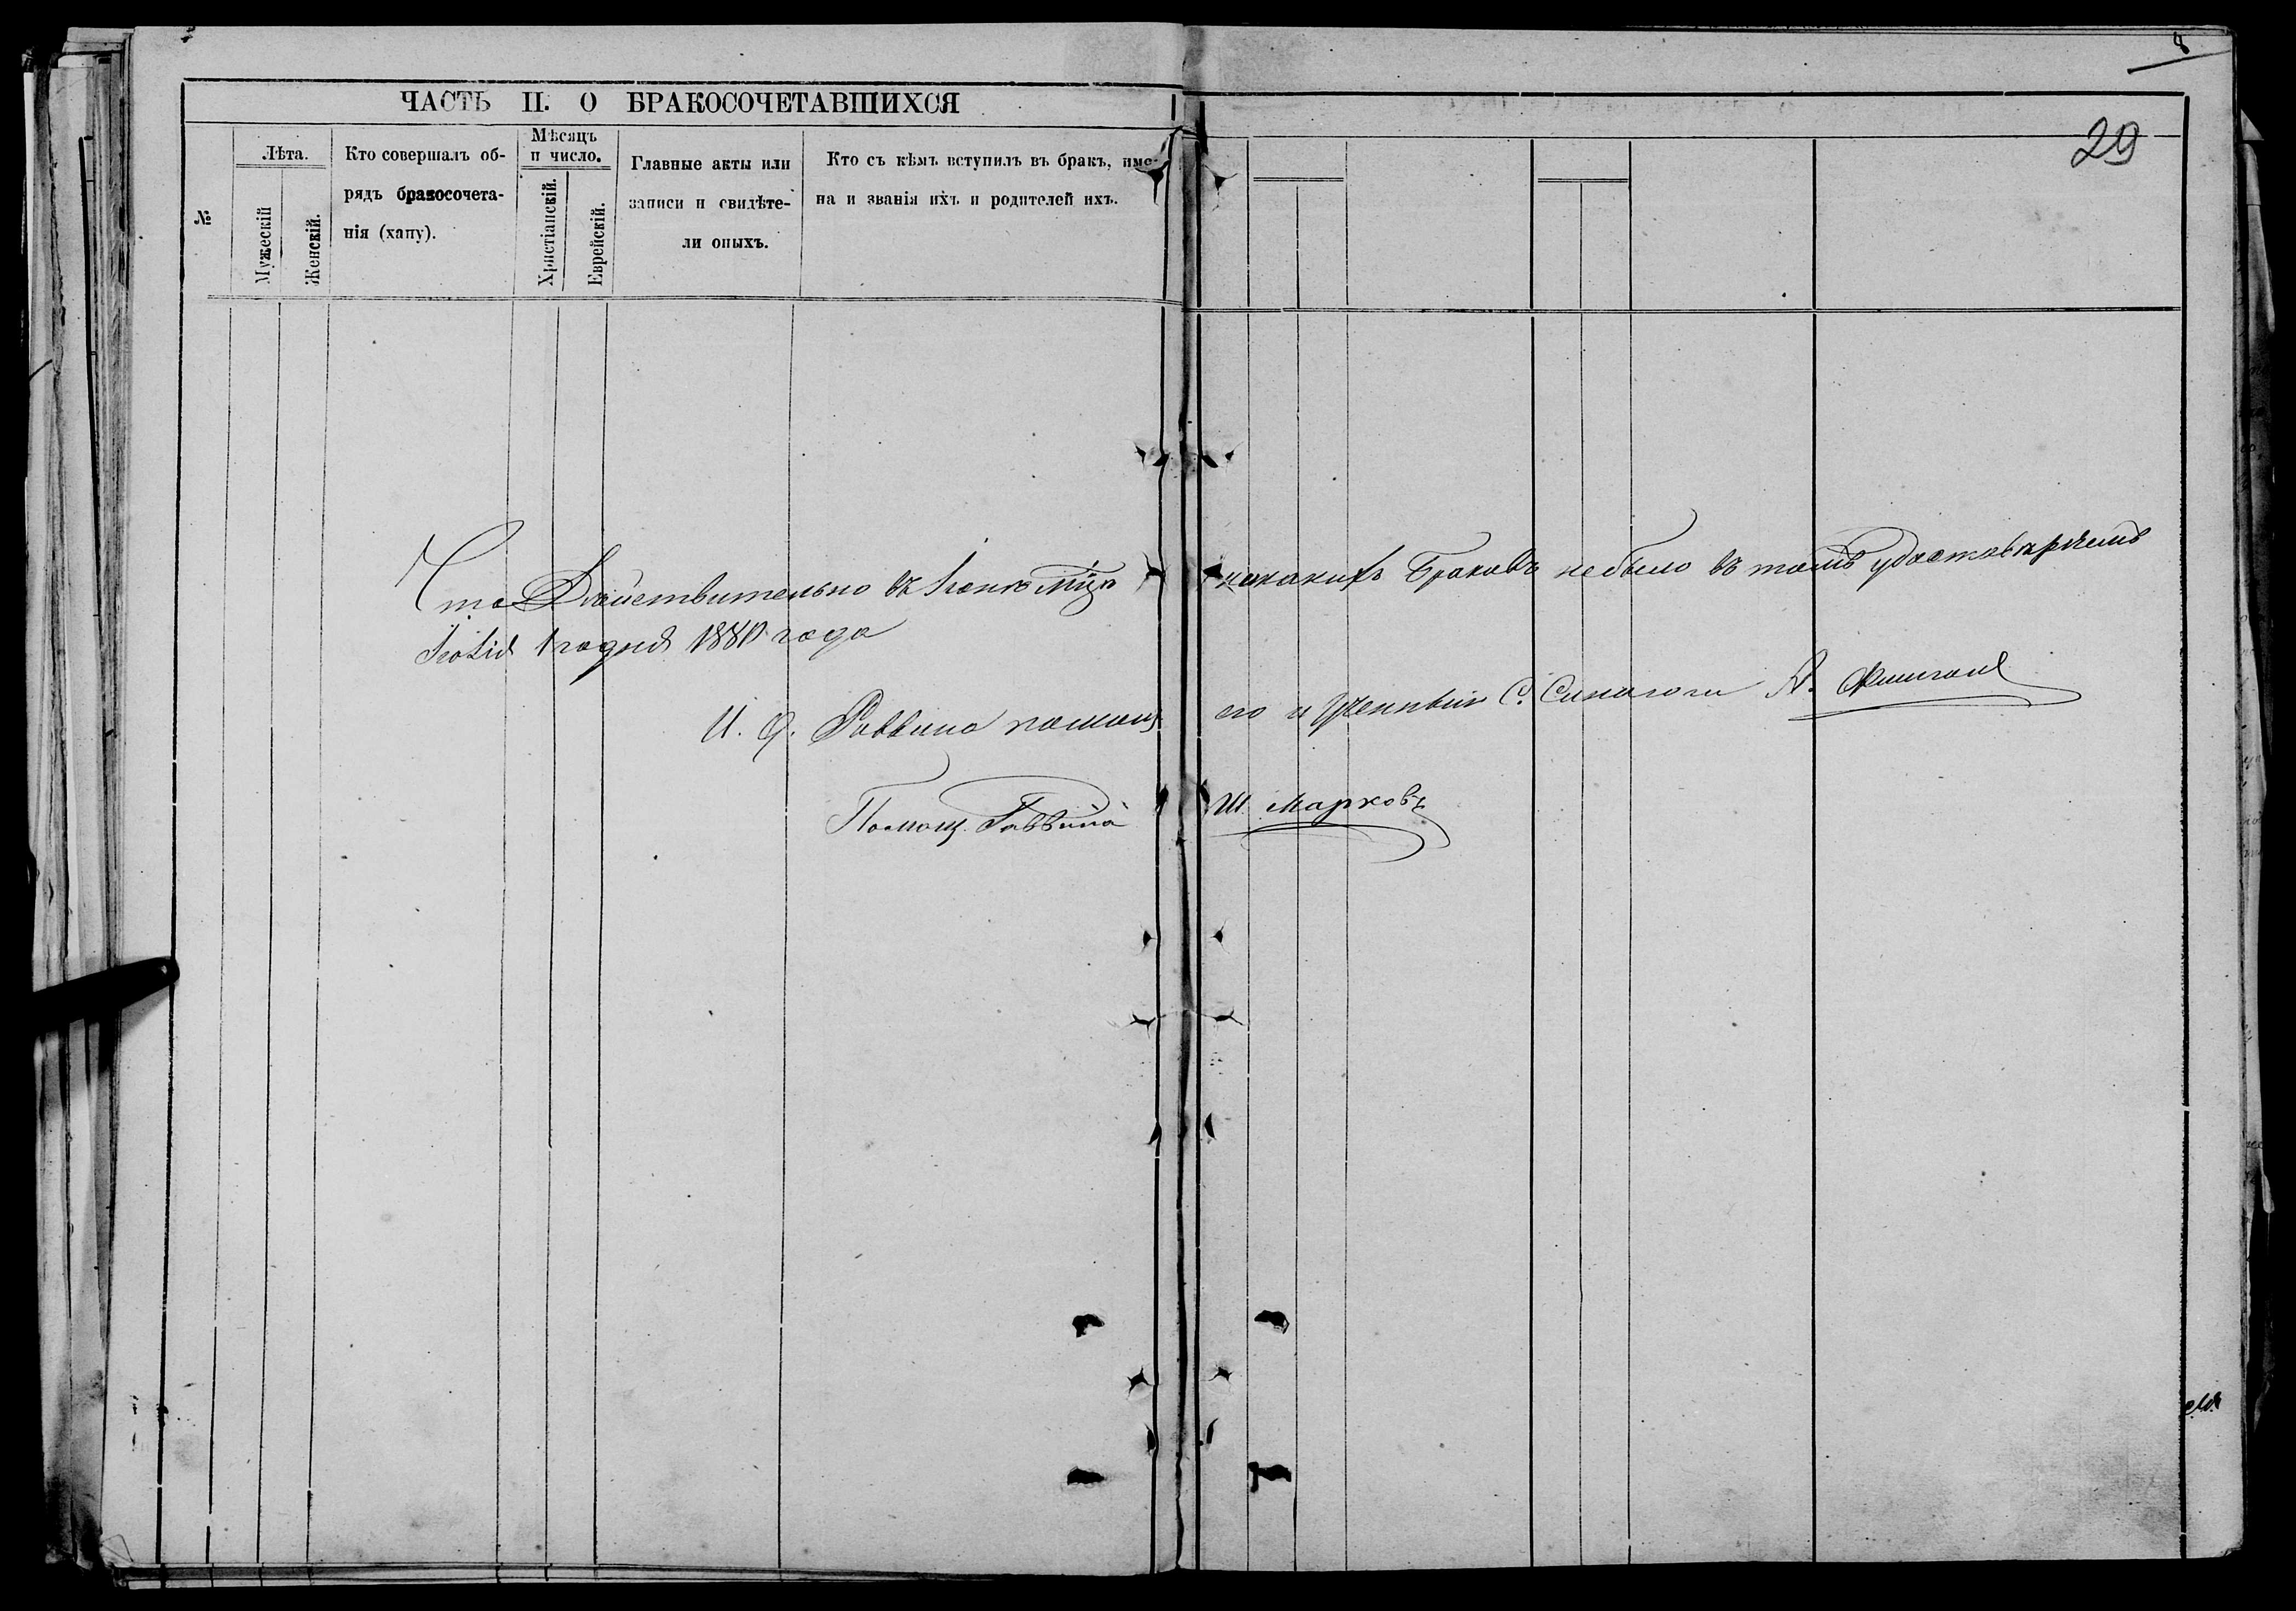 8
29
ЧАСТЬ II. О БРАКОСОЧЕТАВШИХСЯ
№
Лѣта.
Мужескій
Женскій.
Кто совершалъ об-
рядъ бракосочета-
нія (хапу).
Мѣсяцъ
и число.
Христіанскій.
Еврейскій.
Главные акты или
записи и свидѣте-
ли оныхъ.
Кто съ кѣмъ вступилъ въ бракъ, име-
на и званія ихъ и родителей ихъ.
Что Дѣйствительно въ Іюнѣ Мцѣ никакихъ Браковъ не было въ томъ удостовѣряемъ
Іюля 1 дня 1880 года
И. д. Раввина помощ его и Ученный С. Синагоги А.
Помощ. Раввина Ш. Марковъ